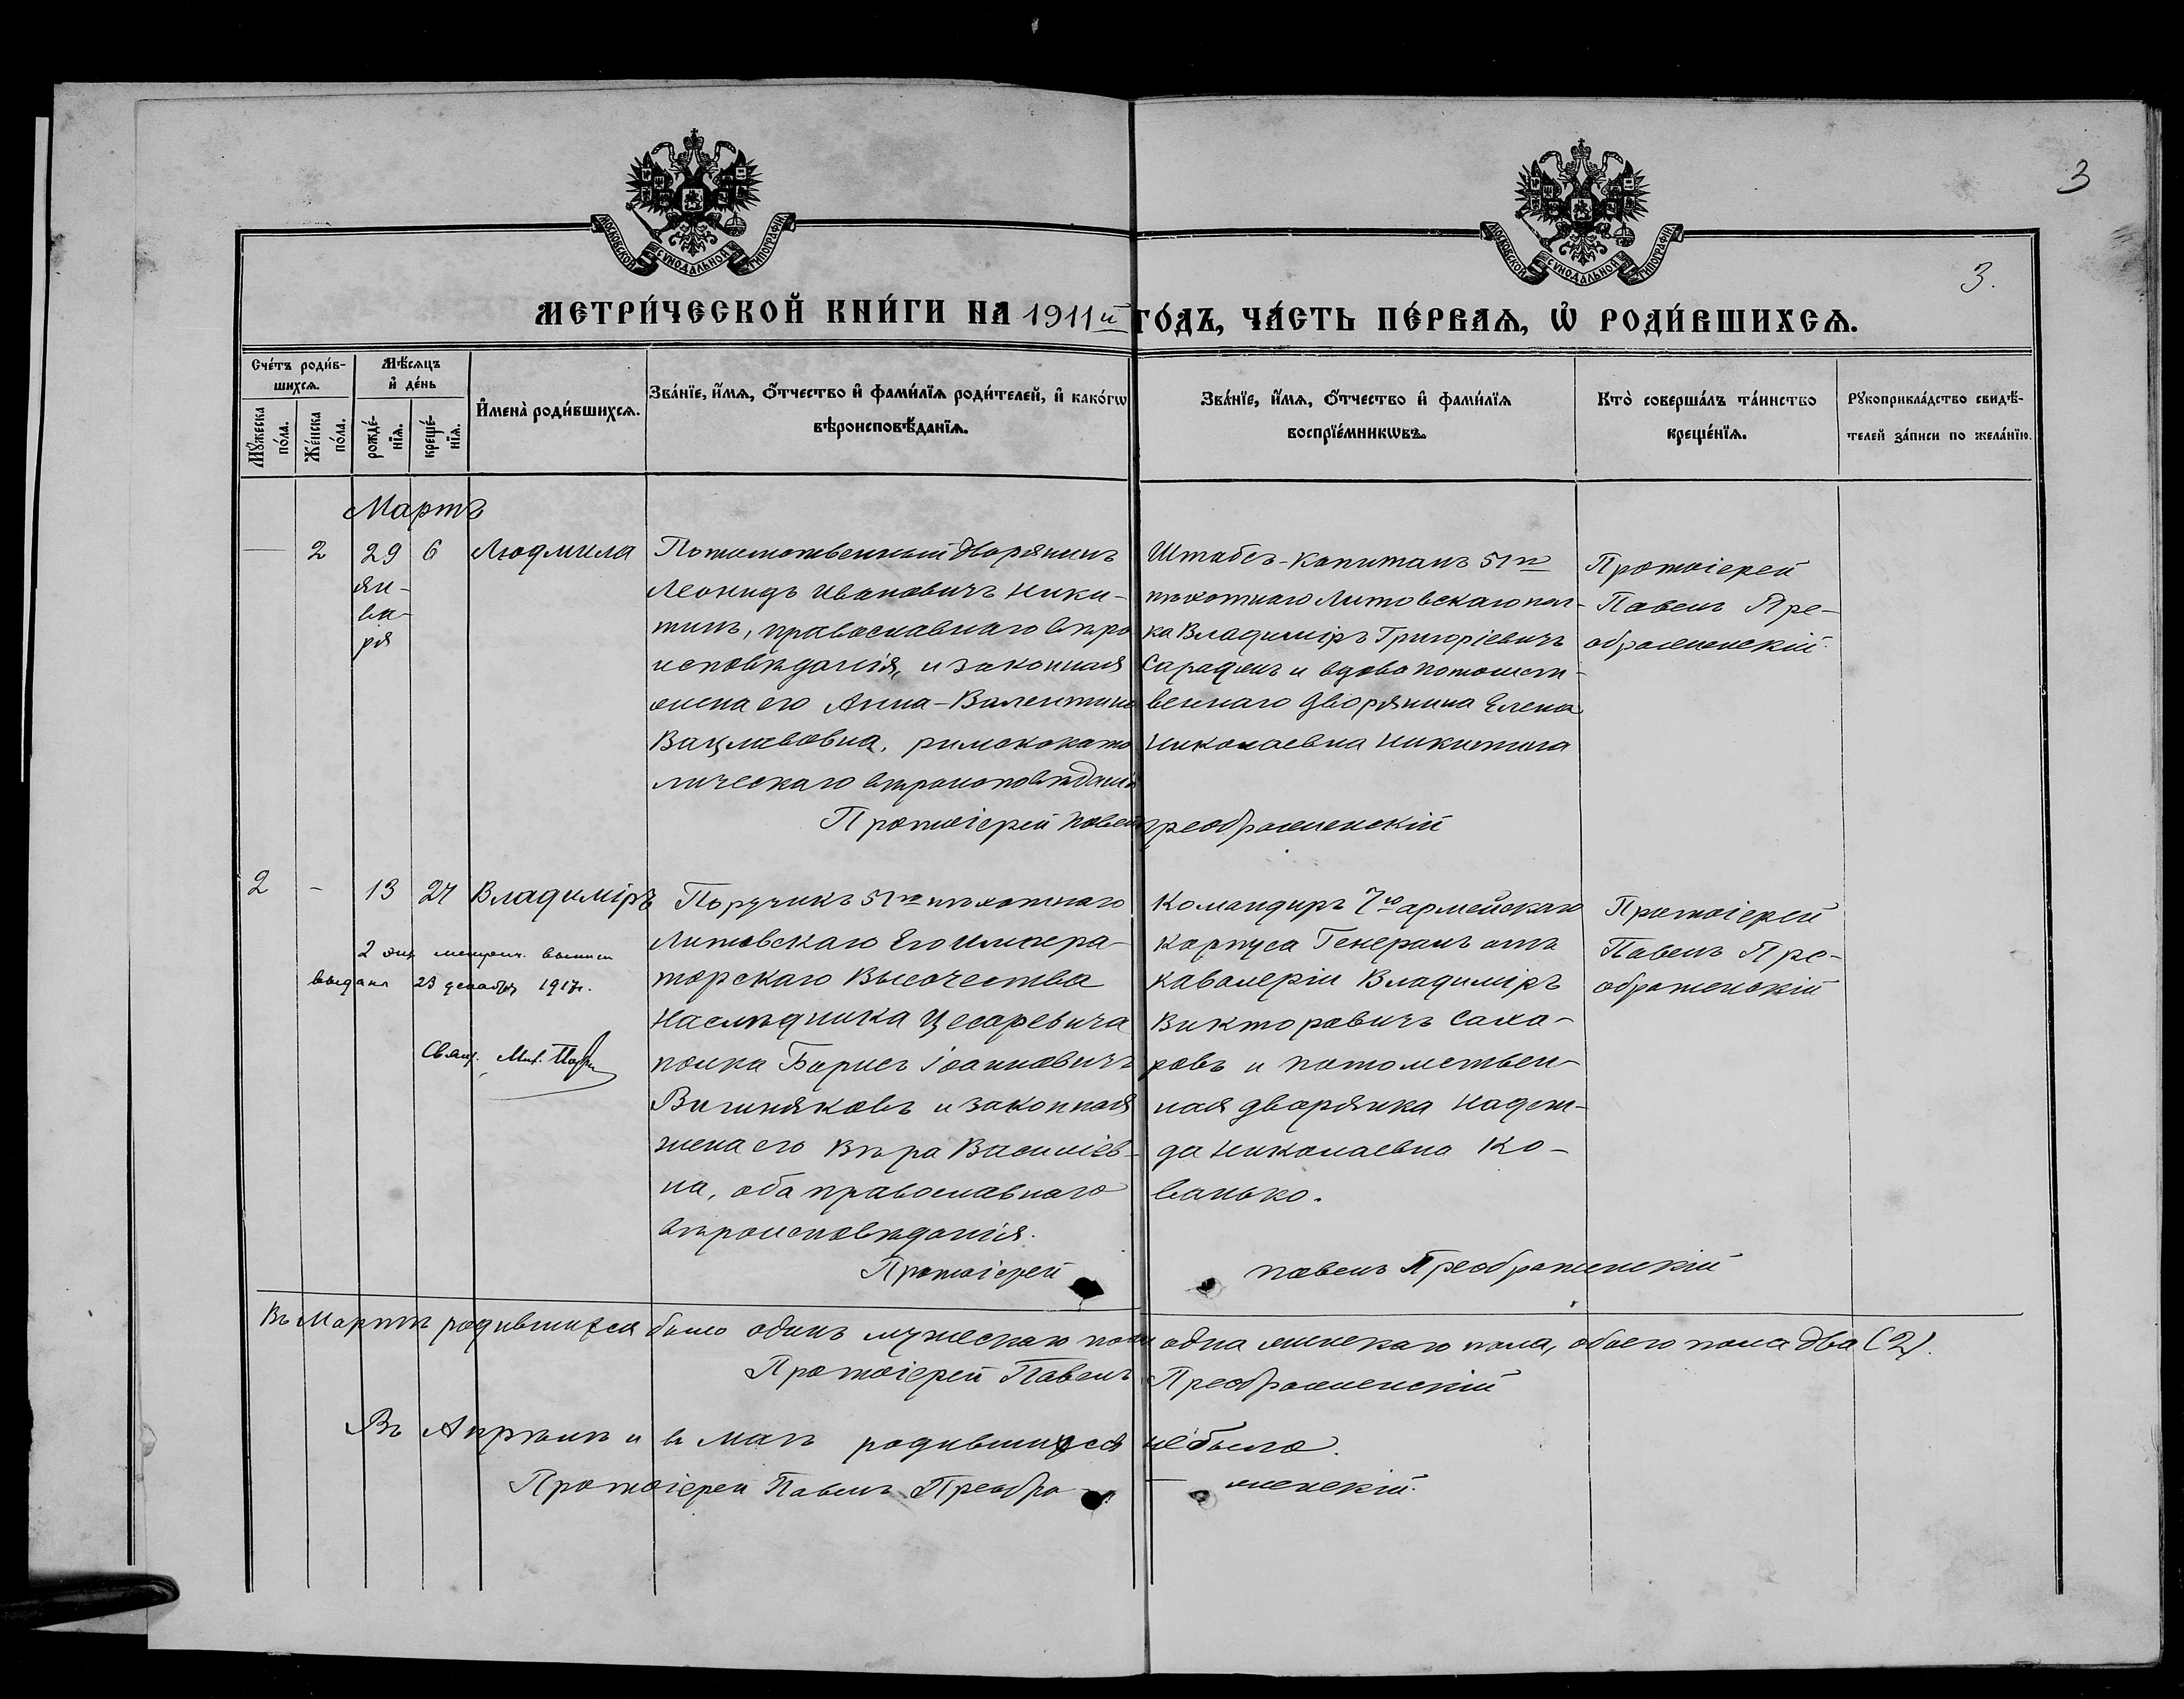 3
МОСКОВСКОЙ СѴНОДАЛЬНОЙ ТИПОГРАФІИ
МОСКОВСКОЙ СѴНОДАЛЬНОЙ ТИПОГРАФІИ
3.
МЕТРИ́ЧЕСКОЙ КНИ́ГИ НА 1911й ГО́ДЪ, ЧА́СТЬ ПЕ́РВАѦ, Ѡ РОДИ́ВШИХСѦ.
Сче́тъ роди́в-
шихсѧ.
Мꙋ́жеска
по́ла.
Же́нска
по́ла.
Мѣ́сѧцъ
и҆ де́нь
рожде́-
нїѧ.
креще́-
нїѧ.
И҆мена̀ роди́вшихсѧ.
Зва́нїе, и҆́мѧ, ѻ҆́тчество и҆ фами́лїѧ роди́телей, и҆ како́гѡ
вѣроисповѣ́данїѧ.
Зва́нїе, и҆́мѧ, ѻ҆́тчество и҆ фами́лїѧ
воспрїе́мникѡвъ.
Кто̀ соверша́лъ та́инство
креще́нїѧ.
Рꙋкоприкла́дство свидѣ́-
телей за́писи по жела́нїю.
Мартъ
— 2 29 6 Людмила
ян-
ва-
ря
Потомственный дворянинъ
Леонидъ Ивановичъ Ники-
тинъ, православнаго вѣро
исповѣданія, и законная
жена его Анна-Валентина
Вацлавовна, римскокато
лическаго вѣроисповѣданія
Штабсъ-капитанъ 51го
пѣхотнаго Литовскаго пол-
ка Владиміръ Григоріевичъ
и вдова потомст-
веннаго дворянина Елена
Николаевна Никитина
Протоіерей
Павелъ Пре-
ображенскій
Протоіерей Павелъ Преображенскій
2 - 13 27 Владиміръ
2 метрич. выписи
выдана 23 декабря 1917г.
Свящ. Мих.
Поручикъ 51го пѣхотнаго
Литовскаго Его Импера-
торскаго Высочества
Наслѣдника Цесаревича
полка Борисъ Іоанновичъ
и законная
жена его Вѣра Василіев-
на, оба православнаго
вѣроисповѣданія.
Командиръ 7го армейскаго
корпуса Генералъ отъ
кавалеріи Владиміръ
Викторовичъ Саха-
ровъ и потомствен-
ная дворянка Надеж-
да Николаевна Ко-
ванько.
Протоіерей
Павелъ Пре-
ображенскій
Протоіерей Павелъ Преображенскій
Въ Мартѣ родившихся было одинъ мужескаго пола одна женскаго пола, обоего пола два (2).
Протоіерей Павелъ Преображенскій
Въ Апрѣлѣ и в Маѣ родившихся не было.
Протоіерей Павелъ Преобра-женскій.